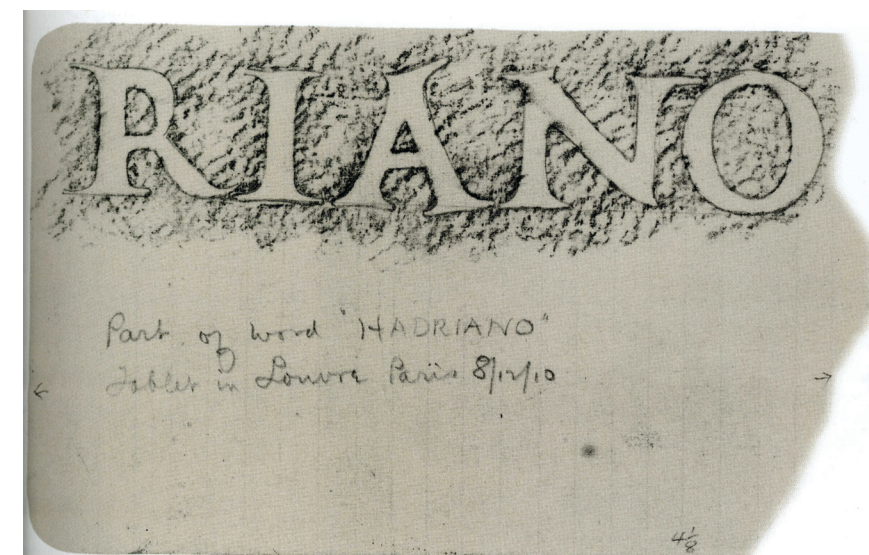 RIANO
Part of word "HADRIANO"
Tablet in Louvre Paris 8/12/10
4 1/8